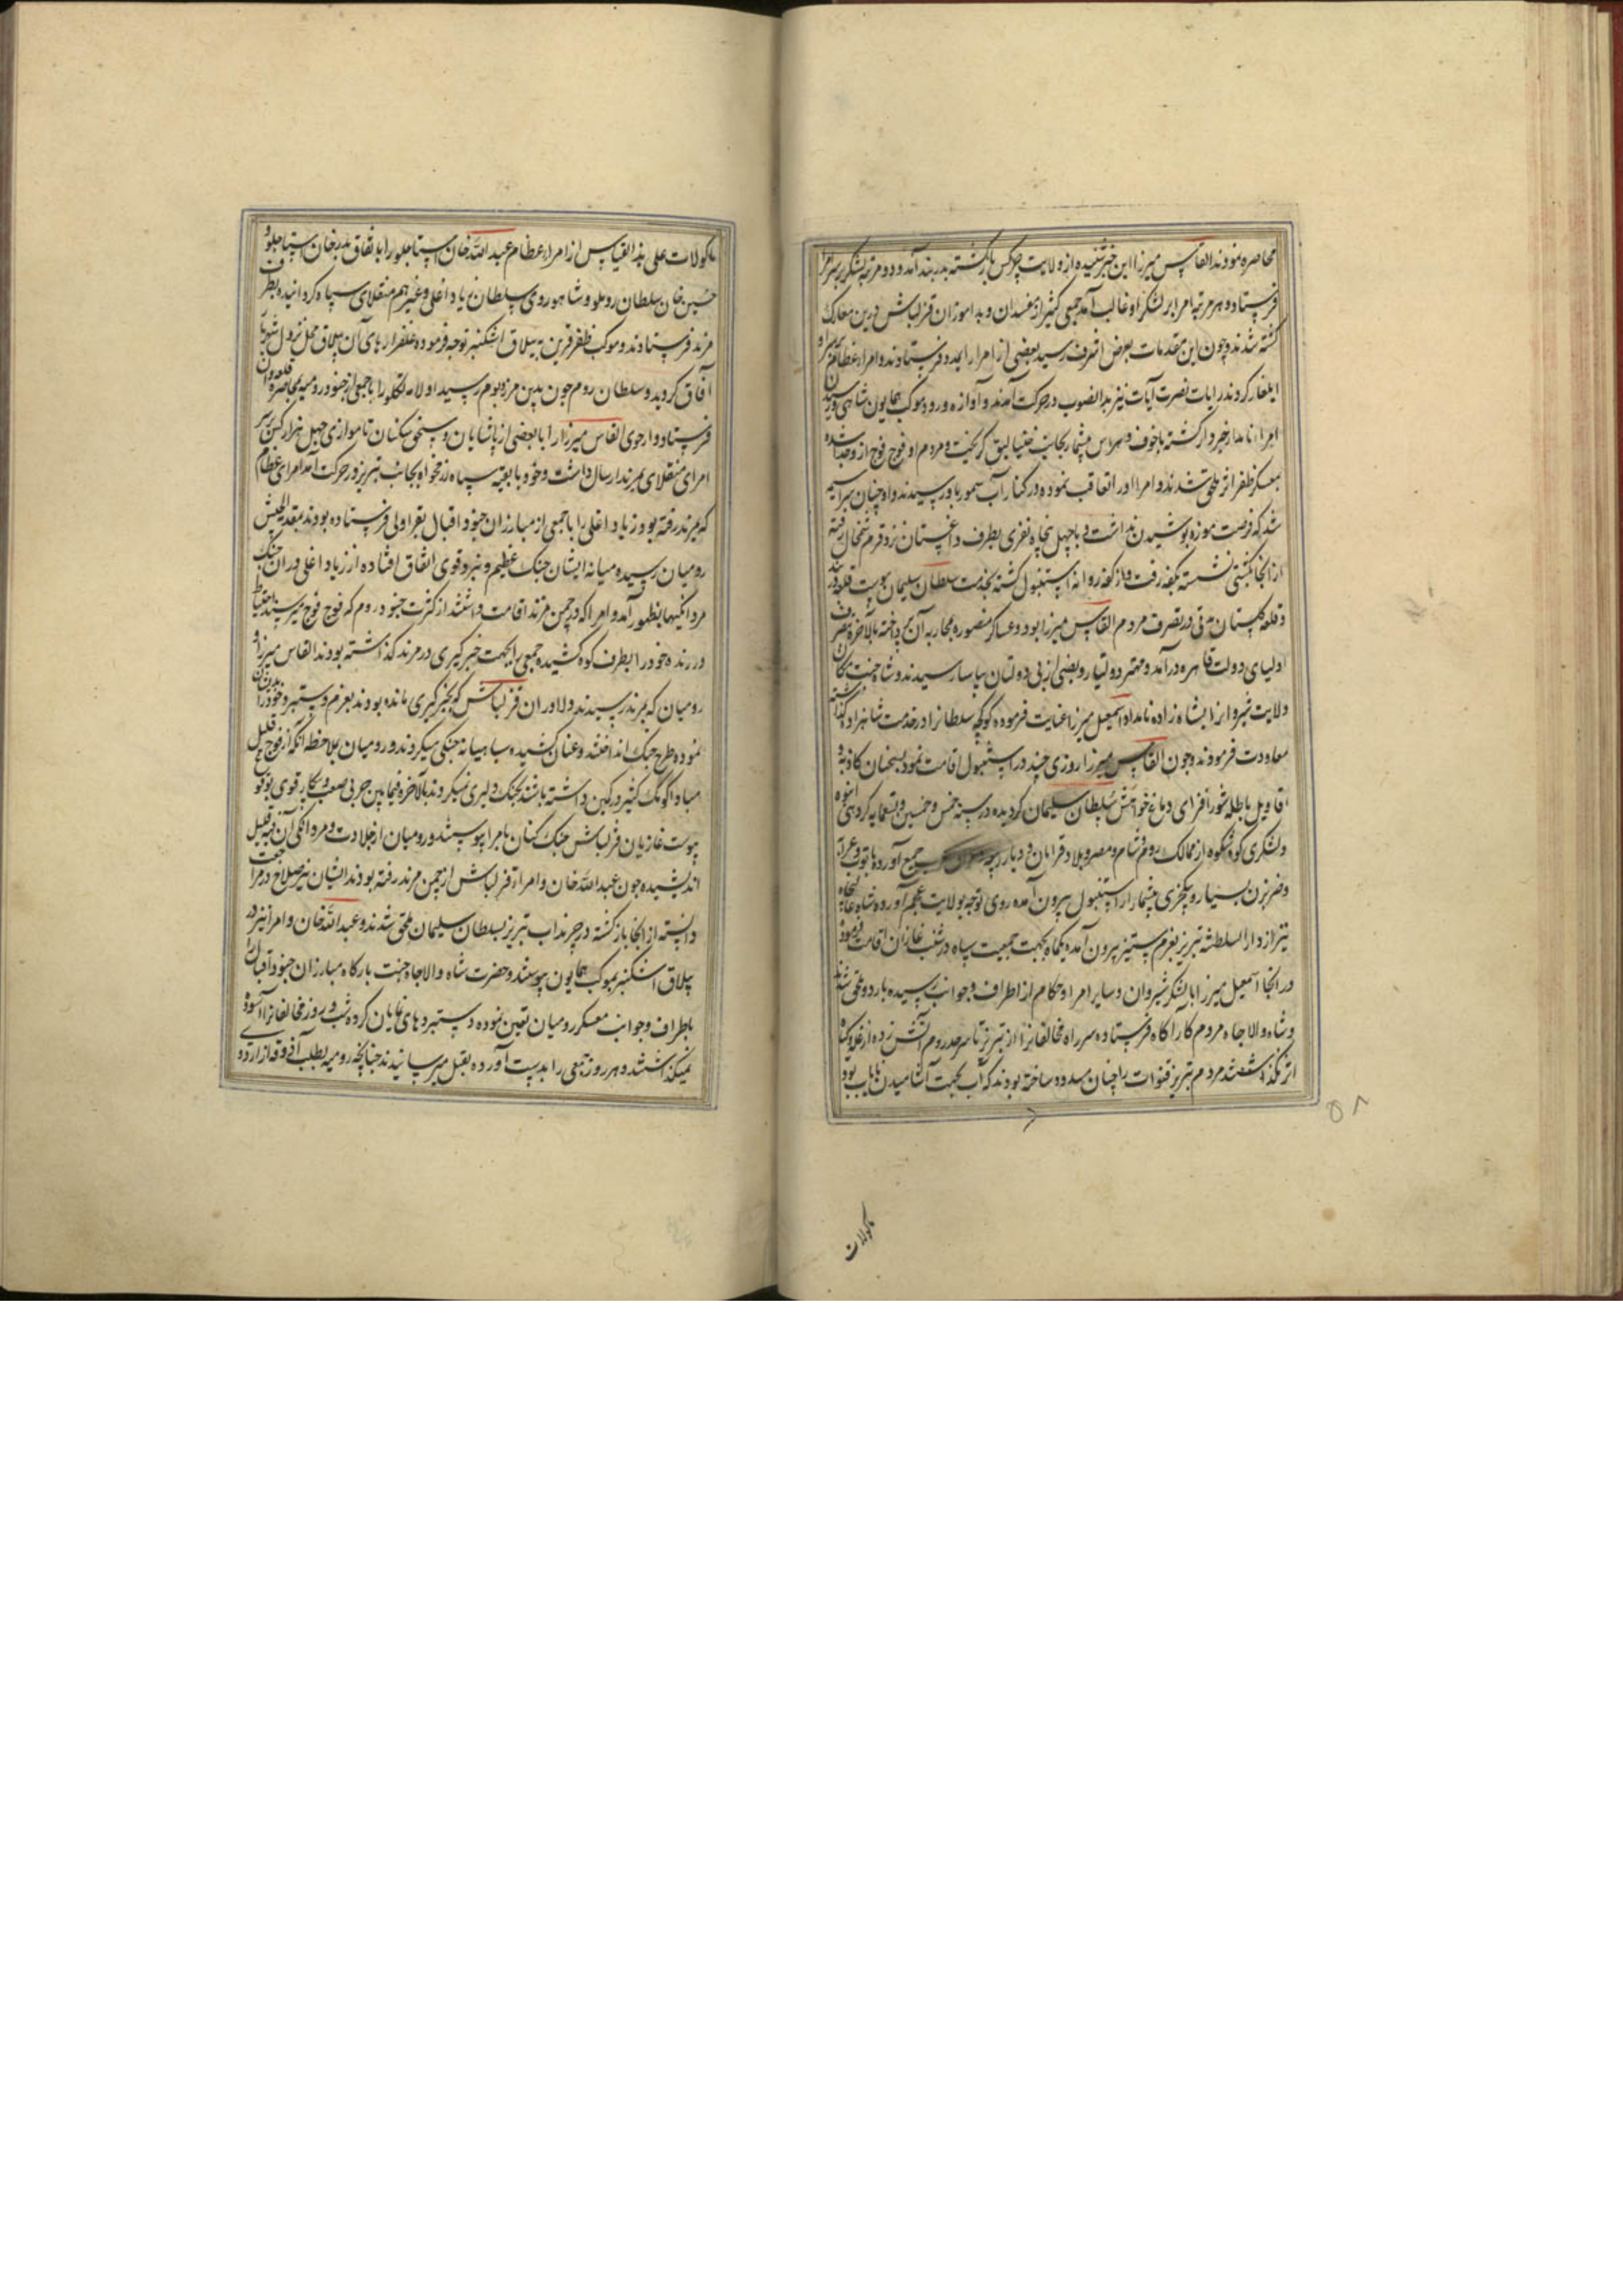 محاصره نمودند القاس میرزا این خبر شنیده از ولایت چرکس بازگشته بدربند آمد و دو مرتبه لشکر بر سر امرا
فرستاد و هر مرتبه امرا بر لشکر او غالب آمد جمعی کثیر از مفسدان و بداموزان قزلباش درین معارک
کشته شدند و چون این مقدمات بعرض اشرف رسید بعضی از امرا را بمدد فرستادند و امراء عظام
ایلغار کردند رایات نصرت آیات نیز بدالضوب در حرکت آمدند و آوازه ورود موکب همایون شاهی
امراء نامدار خبردار کشته با خوف و هراس بیشمار بجانب خنالیق کریخت و مردم او فوج فوج از و جدا شده
بمعسکر ظفر اثر ملحق شدند و امرا او را تعاقب نموده در کنار آب سمور باو رسیدند و او چنان سراسیمه
شد که فرصت موزه پوشیدن نداشت و با چهل پنجاه نفری بطرف داغستان نزد قرم شمخال رفته
از آنجا بکشتی نشسته بکفه رفت و از کفه روانه استنبول کشته بخدمت سلطان سلیمان پیوست
و قلعه کلستان مدتی در تصرف مردم القاس میرزا بود و عساکر منصوره بمحاربه آن پرداخته بالآخره بتصرف
اولیای دولت قاهره درآمد و مهتر دولتیار و بعضی از بی دولتان بیاسا رسیدند و شاه جنت مکان
ولایت شیروانرا بشاه زاده نامدار اسمعیل میرزا عنایت فرموده کوکجه سلطانرا در خدمت شاهزاده کذاشته
معاودت فرمودند و چون القاس میرزا روزی چند در استنبول اقامت نمود بسخنان کاذبه و
اقاویل باطله شور افزای دماغ خواهش سلطان سلیمان کردیده در سنه خمس و خمسین و تسعمایه کروهی انبوه
و لشکری کوه شکوه از ممالک روم و شام و مصر و بلاد قرامان و دیار ربیعه جمع آورده با توپ و عرابه
و ضربزن بسیار و یکچری بیشمار از استنبول بیرون آمده روی توجه بولایت عجم آورده شاه
نیز از دارالسلطنه تبریز بعزم ستیز بیرون آمده یکماه بجهت جمعیت سپاه در شنب غازان اقامت فرمود
در آنجا اسمعیل میرزا با لشکر شیروان و سایر امرا و حکام از اطراف و جوانب رسیده باردو ملحق شدند
و شاه والا جاه مردم کارآکاه فرستاده سر راه مخالفانرا از تبریز تا سرحد روم آتش زده از غله و کیاه
اثر نکذاشتند مردم تبریز قنوات را چنان مسدود ساخته بودند که آب بجهت آشامیدن نایاب بود
ماکولات
۵۸
ماکولات علی هذا القیاس از امراء عظام عبدالله خان استاجلو را باتفاق بدر خان استاجلو و
حسین خان سلطان روملو و شاهوردی سلطان زیاد اغلی و غیرهم منقلای سپاه کردانیده بطرف
مرند فرستادند و موکب ظفر قرین به ییلاق اشکنبر توجه فرموده علفزارهای آن ییلاق محل نزول
آفاق کردید و سلطان روم چون بدین مرز و بوم رسید اولامه تکلو را با جمعی از جنود رومیه بمحاصره قلعه وان
فرستاد و ارجوی القاس میرزا را با بعضی از پاشایان و سنجق بکیان تا موازی چهل هزار کس بر سر
امرای منقلای بمرند ارسال داشت و خود با بقیه سپاه رزمخواه بجانب تبریز در حرکت آمد امرای عظام
که بمرند رفته بودند زیاد اغلی را با جمعی از مبارزان جنود اقبال بقراولی فرستاده بودند بمقدمة الجیش
رومیان رسیده میانه ایشان جنک عظیم و نبرد قوی اتفاق افتاده از زیاد اغلی در ان جنک
مردانکیها بظهور آمد و امرا که در چمن مرند اقامت داشتند از کثرت جنود روم که فوج فوج میرسیدند احتیاط
ورزیده خود را بطرف کوه کشیده جمعی را بجهت خبرکیری در مرند کذاشته بودند القاس میرزا و
رومیان که بمرند رسیدند دلاوران قزلباش که بخبرکیری مانده بودند بعزم دستبرد خود را بدیشان
نموده طرح جنک انداختند و عنان کشیده سپاهیانه جنکی میکردند و رومیان بملاحظه آنکه از فوج قلیل
مبادا کومک کثیر در کمین داشته باشند بجنک دلیری نمیکردند بالآخره فیمابین حربی صعب و پیکار قوی بوقوع
پیوست غازیان قزلباش جنک کنان بامرا پیوستند و رومیان از جلادت و مردانکی آن فئه قلیل
اندیشیده چون عبدالله خان و امراء قزلباش از چمن مرند رفته بودند ایشان نیز صلاح در مراجعت
دانسته از آنجا بازکشته در چرنداب تبریز بسلطان سلیمان ملحق شدند و عبدالله خان و امرا نیز در
ییلاق اشکنبر بموکب همایون پیوستند و حضرت شاه والا جاه جنت بارکاه مبارزان جنود اقبال را
باطراف و جوانب معسکر رومیان تعین نموده دستبردهای نمایان کرده شب و روز مخالفانرا آسوده
نمیکذاشتند و هر روز جمعی را بدست آورده بقتل میرسانیدند چنانچه رومیه بطلب آذوقه از اردو